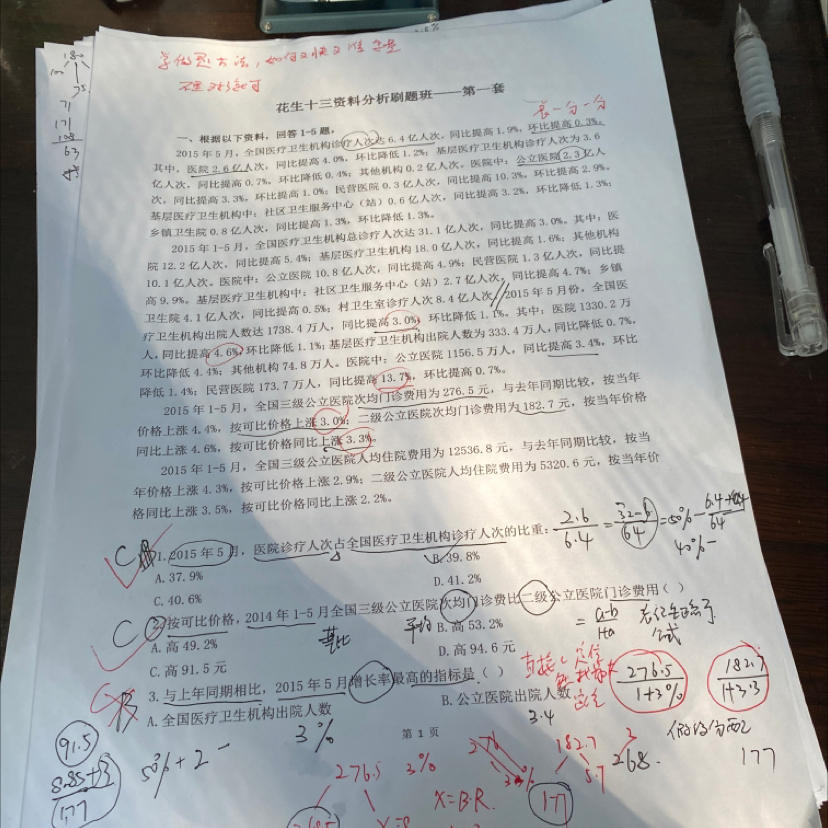 花生十三资料分析刷题班——第一套
一、根据以下资料，回答1-5题。
2015年5月，全国医疗卫生机构诊疗人次达6.4亿人次，同比提高1.9%，环比提高0.3%。
其中，医院2.6亿人次，同比提高4.0%，环比降低1.2%；基层医疗卫生机构诊疗人次为3.6
亿人次，同比提高0.7%，环比降低0.4%；其他机构0.2亿人次。医院中：公立医院2.3亿人
次，同比提高3.3%，环比提高1.0%；民营医院0.3亿人次，同比提高10.3%，环比提高2.9%。
基层医疗卫生机构中：社区卫生服务中心（站）0.6亿人次，同比提高3.2%，环比降低1.3%；
乡镇卫生院0.8亿人次，同比提高1.3%，环比降低1.3%。
2015年1-5月，全国医疗卫生机构总诊疗人次达31.1亿人次，同比提高3.0%。其中：医
院12.2亿人次，同比提高5.4%；基层医疗卫生机构18.0亿人次，同比提高1.6%；其他机构
10.1亿人次。医院中：公立医院10.8亿人次，同比提高4.9%；民营医院1.3亿人次，同比提
高9.9%。基层医疗卫生机构中：社区卫生服务中心（站）2.7亿人次，同比提高4.7%；乡镇
卫生院4.1亿人次，同比提高0.5%；村卫生室诊疗人次8.4亿人次 2015年5月份，全国医
疗卫生机构出院人数达1738.4万人，同比提高3.0%，环比降低1.1%。其中：医院1330.2万
人，同比提高4.6%，环比降低1.1%；基层医疗卫生机构出院人数为333.4万人，同比降低0.7%，
环比降低4.4%；其他机构74.8万人。医院中：公立医院1156.5万人，同比提高3.4%，环比
降低1.4%；民营医院173.7万人，同比提高13.7%，环比提高0.7%。
2015年1-5月，全国三级公立医院次均门诊费用为276.5元，与去年同期比较，按当年
价格上涨4.4%，按可比价格上涨3.0%；二级公立医院次均门诊费用为182.7元，按当年价格
同比上涨4.6%，按可比价格同比上涨3.3%。
2015年1-5月，全国三级公立医院人均住院费用为12536.8元，与去年同期比较，按当
年价格上涨4.3%，按可比价格上涨2.9%；二级公立医院人均住院费用为5320.6元，按当年价
格同比上涨3.5%，按可比价格同比上涨2.2%。
1.2015年5月，医院诊疗人次占全国医疗卫生机构诊疗人次的比重：
A. 37.9%
B. 39.8%
C. 40.6%
D. 41.2%
2.按可比价格，2014年1-5月全国三级公立医院次均门诊费比二级公立医院门诊费用（ ）
A. 高49.2%
B. 高53.2%
C. 高91.5元
D. 高94.6元
3.与上年同期相比，2015年5月增长率最高的指标是（ ）
A. 全国医疗卫生机构出院人数
B. 公立医院出院人数
3%
3.4
第 1 页
91.5
177
276.5 3%
182.7
5.7
268
177
X=B·R